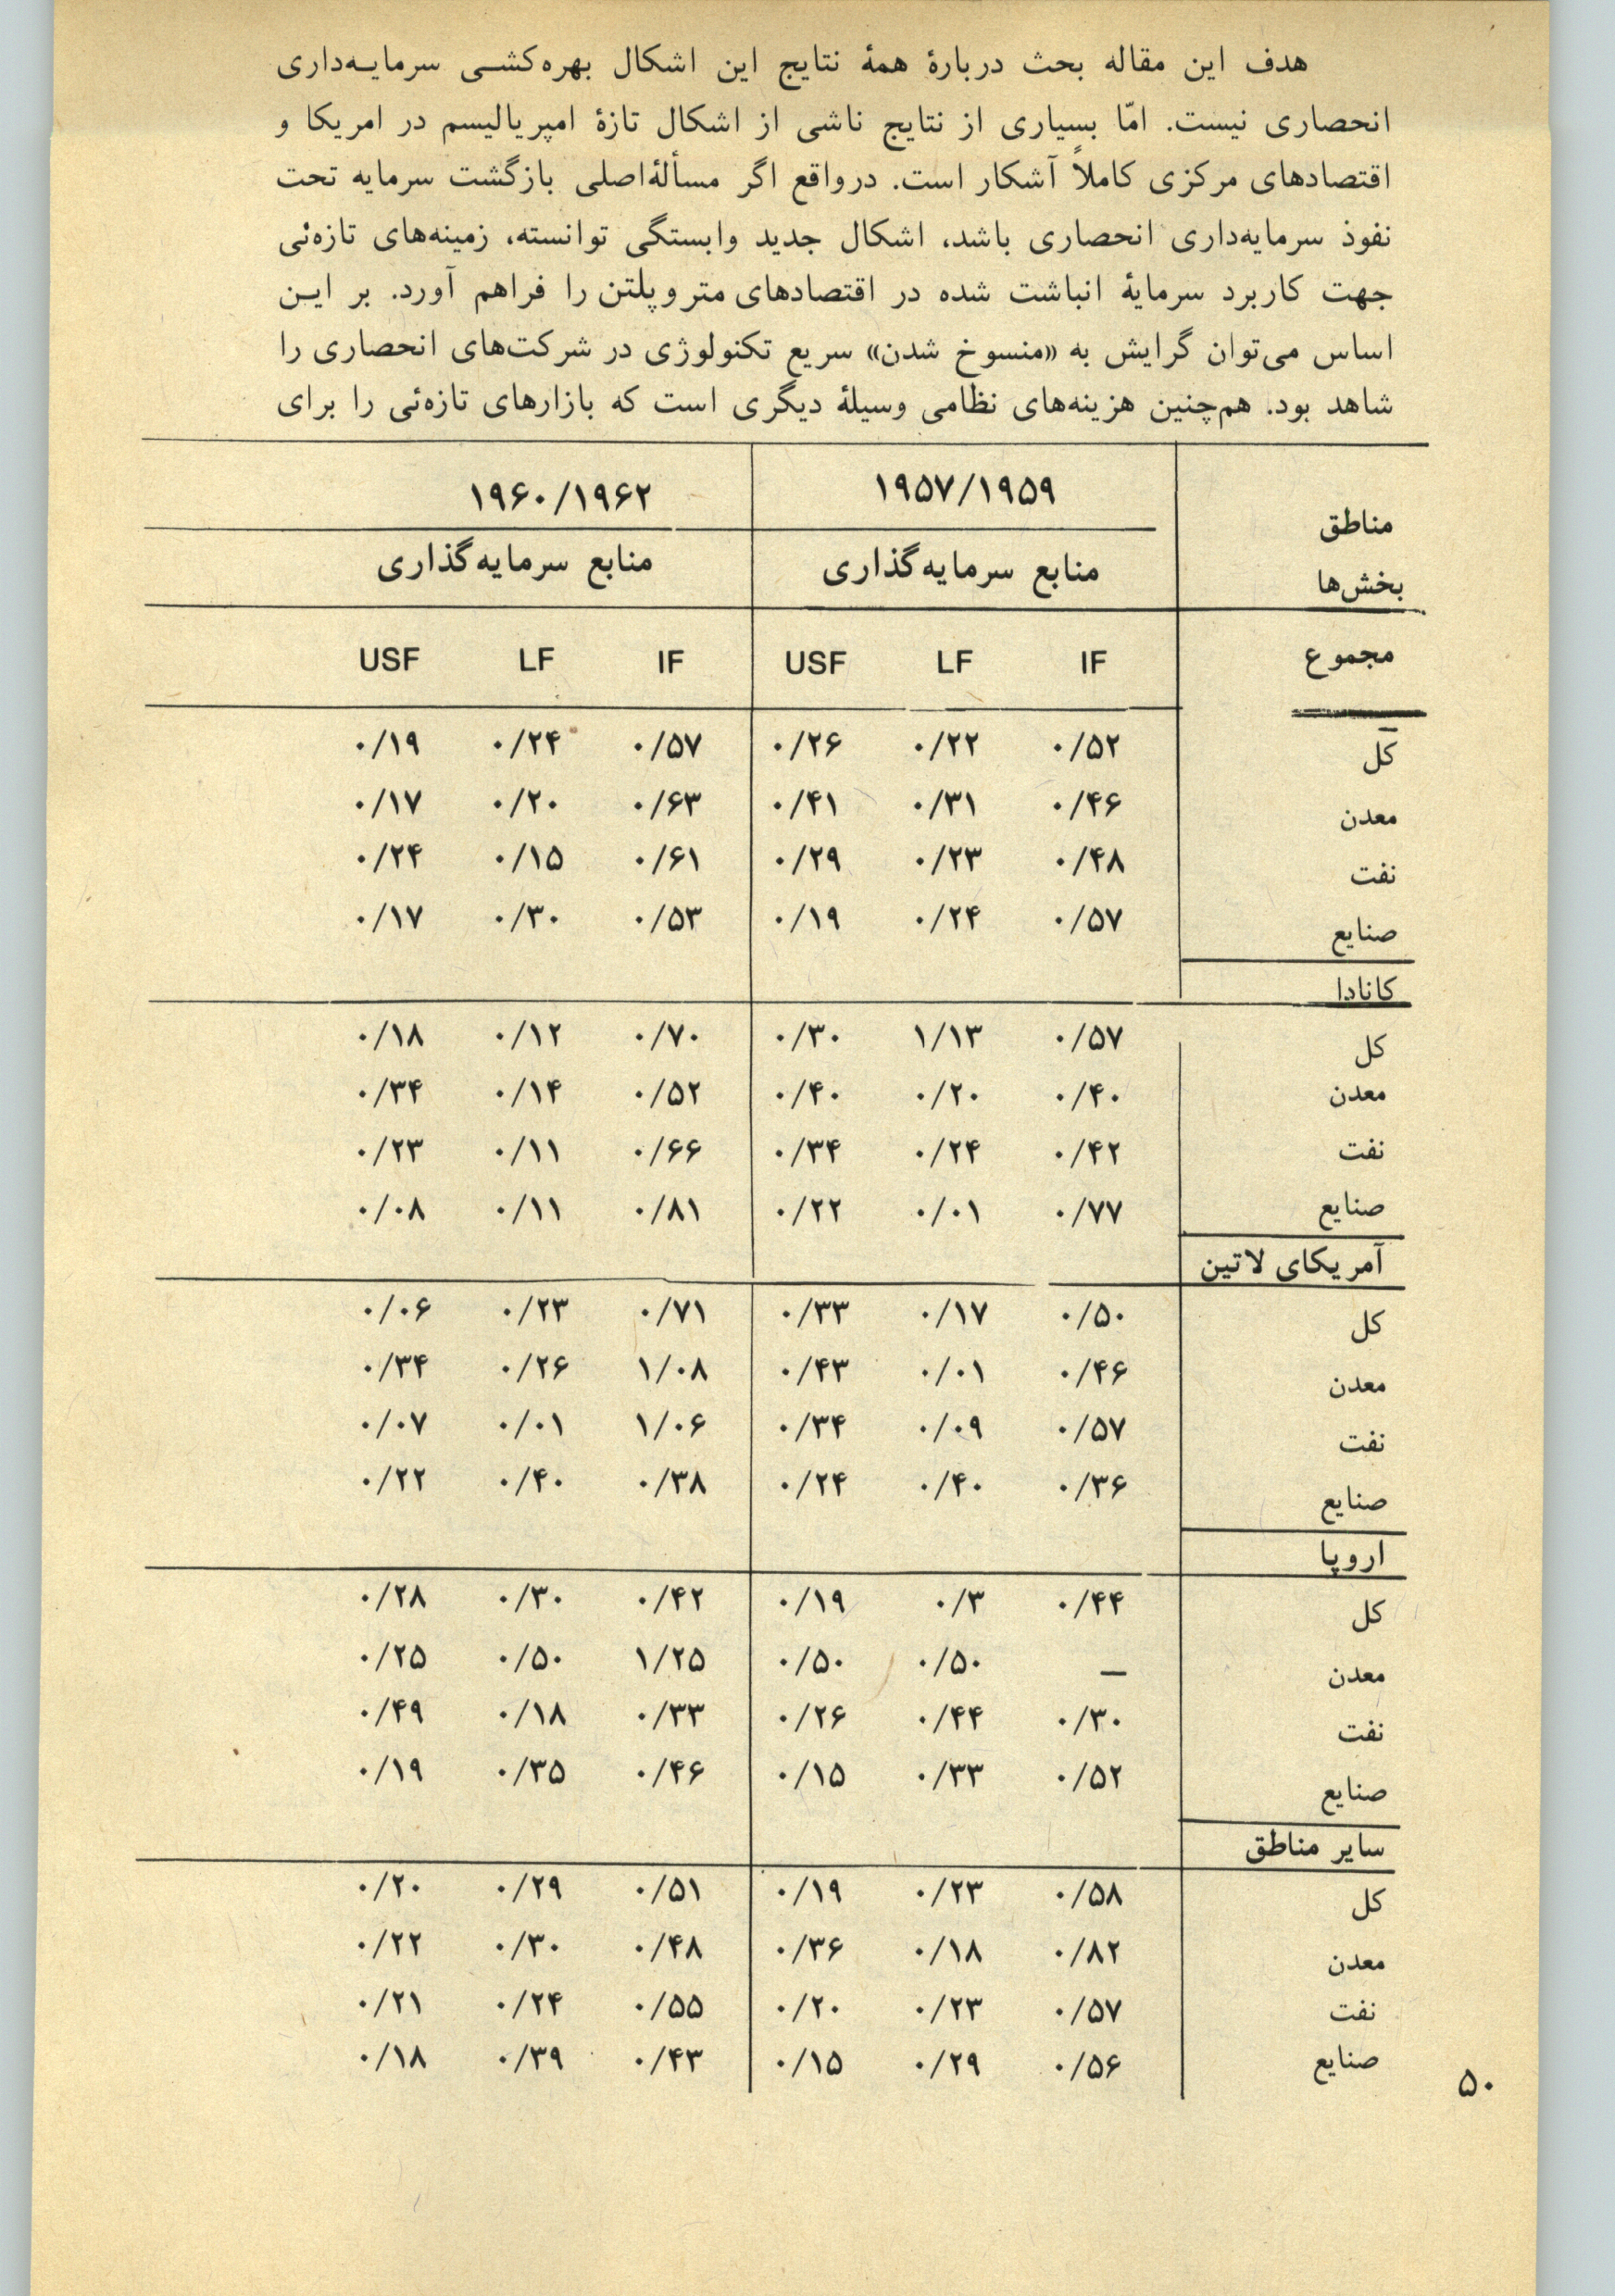 هدف این مقاله بحث دربارهٔ همهٔ نتایج این اشکال بهره‌کشـی سرمایـه‌داری
انحصاری نیست. امّا بسیاری از نتایج ناشی از اشکال تازهٔ امپریالیسم در امریکا و
اقتصادهای مرکزی کاملاً آشکار است. درواقع اگر مسألهٔ‌اصلی بازگشت سرمایه تحت
نفوذ سرمایه‌داری انحصاری باشد، اشکال جدید وابستگی توانسته، زمینه‌های تازه‌ئی
جهت کاربرد سرمایهٔ انباشت شده در اقتصادهای متروپلتن را فراهم آورد. بر ایـن
اساس می‌توان گرایش به «منسوخ شدن» سریع تکنولوژی در شرکت‌های انحصاری را
شاهد بود. هم‌چنین هزینه‌های نظامی وسیلهٔ دیگری است که بازارهای تازه‌ئی را برای
مناطق ۱۹۵۷/۱۹۵۹ ۱۹۶۰/۱۹۶۲
بخش‌ها منابع سرمایه‌گذاری منابع سرمایه‌گذاری
مجموع IF LF USF IF LF USF
کل ۰/۵۲ ۰/۲۲ ۰/۲۶ ۰/۵۷ ۰/۲۴ ۰/۱۹
معدن ۰/۴۶ ۰/۳۱ ۰/۴۱ ۰/۶۳ ۰/۲۰ ۰/۱۷
نفت ۰/۴۸ ۰/۲۳ ۰/۲۹ ۰/۶۱ ۰/۱۵ ۰/۲۴
صنایع ۰/۵۷ ۰/۲۴ ۰/۱۹ ۰/۵۳ ۰/۳۰ ۰/۱۷
کانادا
کل ۰/۵۷ ۱/۱۳ ۰/۳۰ ۰/۷۰ ۰/۱۲ ۰/۱۸
معدن ۰/۴۰ ۰/۲۰ ۰/۴۰ ۰/۵۲ ۰/۱۴ ۰/۳۴
نفت ۰/۴۲ ۰/۲۴ ۰/۳۴ ۰/۶۶ ۰/۱۱ ۰/۲۳
صنایع ۰/۷۷ ۰/۰۱ ۰/۲۲ ۰/۸۱ ۰/۱۱ ۰/۰۸
آمریکای لاتین
کل ۰/۵۰ ۰/۱۷ ۰/۳۳ ۰/۷۱ ۰/۲۳ ۰/۰۶
معدن ۰/۴۶ ۰/۰۱ ۰/۴۳ ۱/۰۸ ۰/۲۶ ۰/۳۴
نفت ۰/۵۷ ۰/۰۹ ۰/۳۴ ۱/۰۶ ۰/۰۱ ۰/۰۷
صنایع ۰/۳۶ ۰/۴۰ ۰/۲۴ ۰/۳۸ ۰/۴۰ ۰/۲۲
اروپا
کل ۰/۴۴ ۰/۳ ۰/۱۹ ۰/۴۲ ۰/۳۰ ۰/۲۸
معدن — ۰/۵۰ ۰/۵۰ ۱/۲۵ ۰/۵۰ ۰/۲۵
نفت ۰/۳۰ ۰/۴۴ ۰/۲۶ ۰/۳۳ ۰/۱۸ ۰/۴۹
صنایع ۰/۵۲ ۰/۳۳ ۰/۱۵ ۰/۴۶ ۰/۳۵ ۰/۱۹
سایر مناطق
کل ۰/۵۸ ۰/۲۳ ۰/۱۹ ۰/۵۱ ۰/۲۹ ۰/۲۰
معدن ۰/۸۲ ۰/۱۸ ۰/۳۶ ۰/۴۸ ۰/۳۰ ۰/۲۲
نفت ۰/۵۷ ۰/۲۳ ۰/۲۰ ۰/۵۵ ۰/۲۴ ۰/۲۱
صنایع ۰/۵۶ ۰/۲۹ ۰/۱۵ ۰/۴۳ ۰/۳۹ ۰/۱۸
۵۰